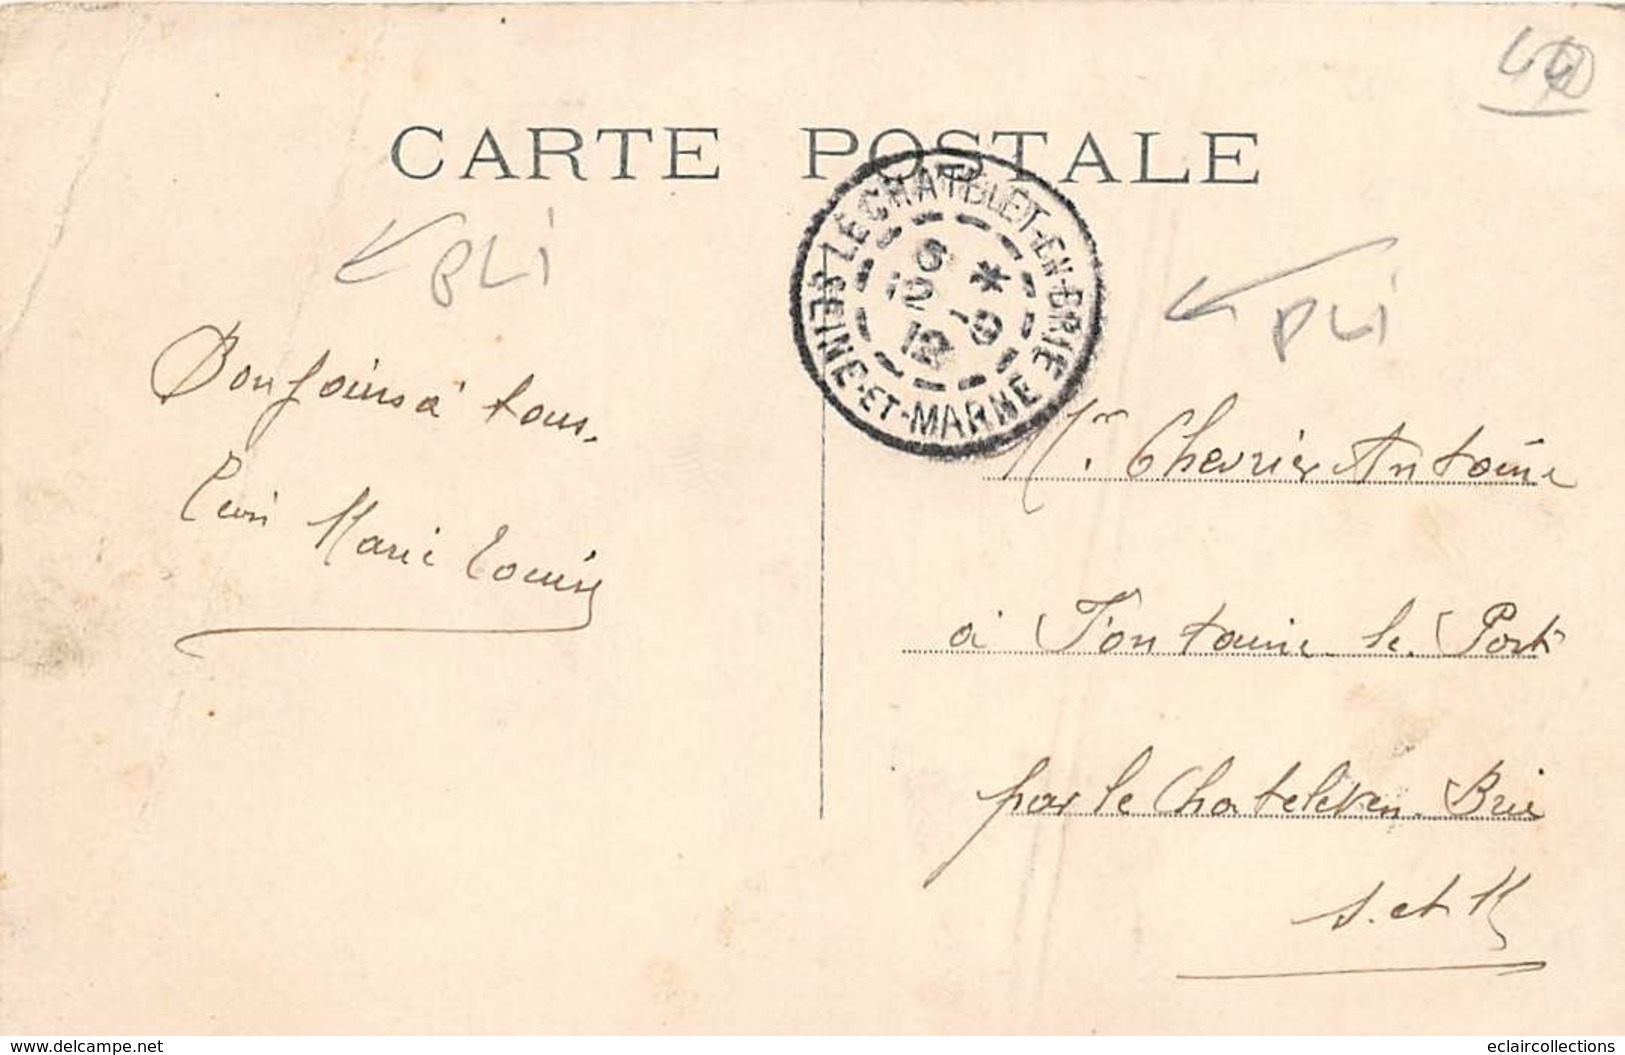 CARTE POSTALE
PLI
PLI
LE CHATELET-EN-BRIE
6 *
12 -9
12
SEINE-ET-MARNE
Bonjours à tous.
Marie Louise
Mr. Chevrier Antoine
à Fontaine le Port
par le Chatelet en Brie
S. et M
www.delcampe.net
eclaircollections